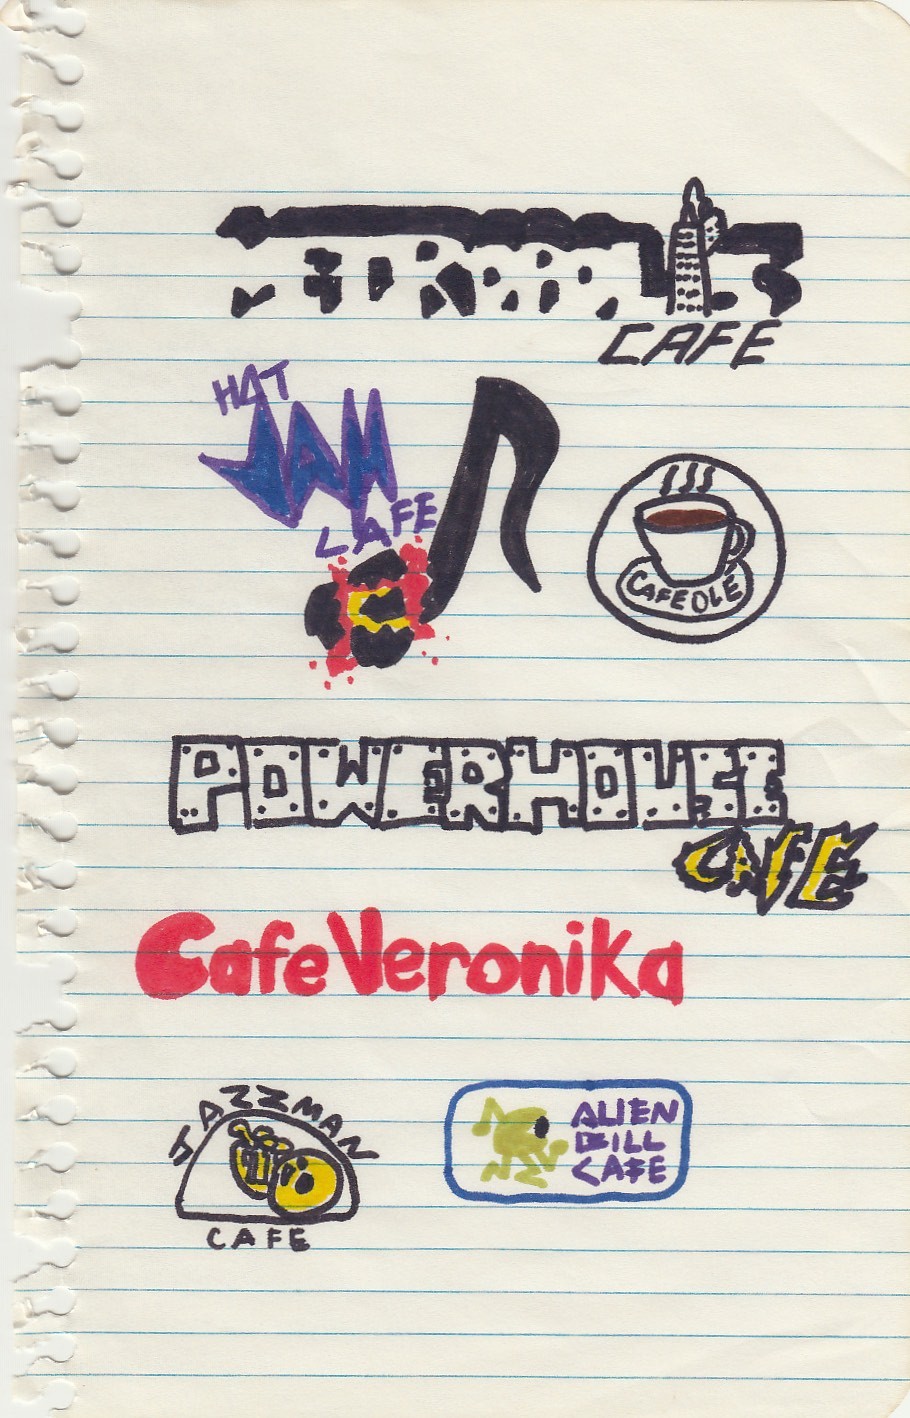 CAFE
HAT
JAM
CAFE
CAFE OLE
POWERHOUSE
CAFE
Cafe Veronika
JAZZMAN
CAFE
ALIEN
BILL
CAFE